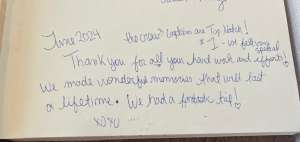 June 2024
the crew & Captain are Top Notch!
I - we felt very special
Thank you for all your hard work and efforts!
We made wonderful memories that will last
a lifetime. We had a fantastic trip!
xoxo